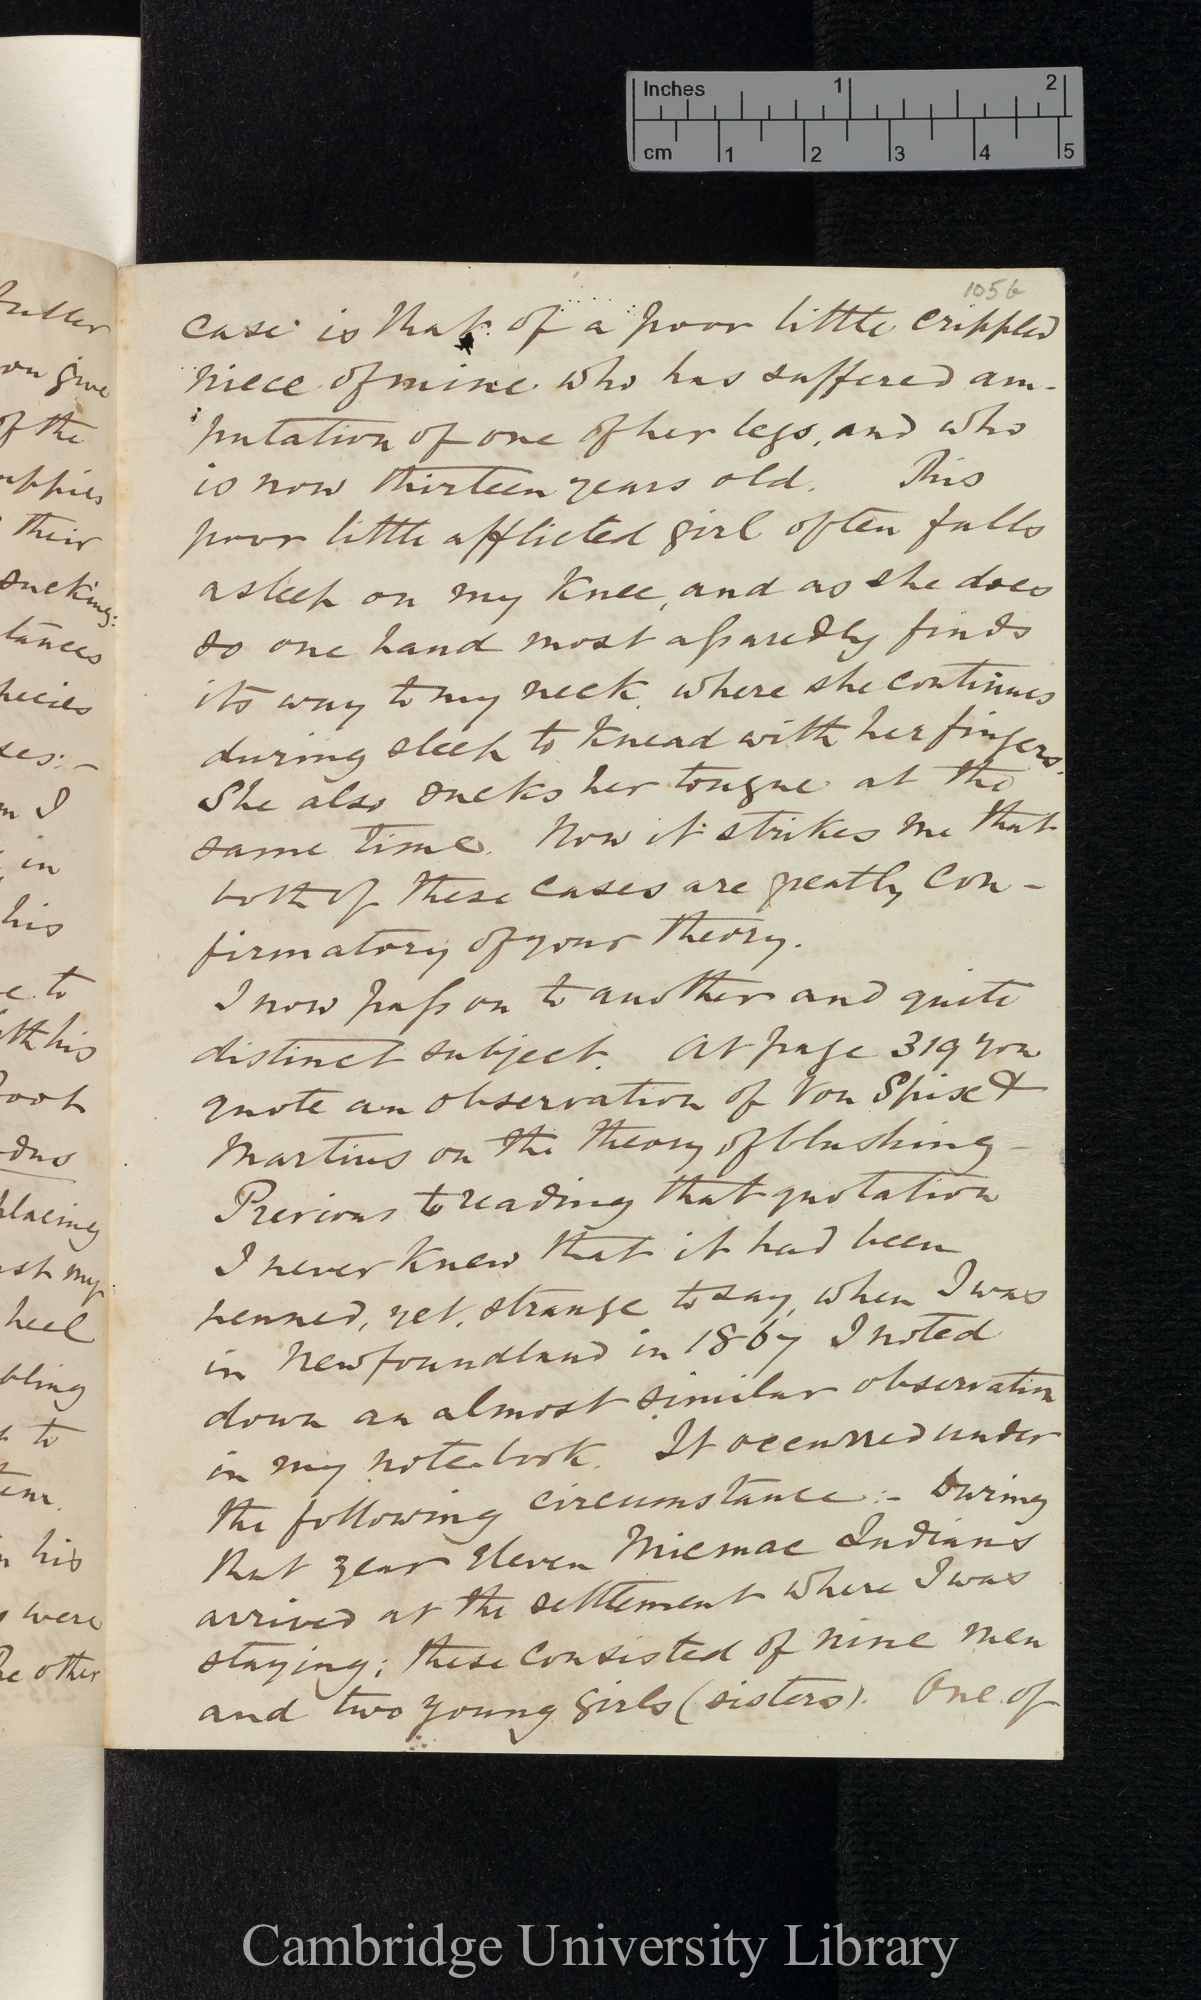 Inches 1 2
cm 1 2 3 4 5
105b
case is that of a poor little crippled
niece of mine who has suffered am-
putation of one of her legs, and who
is now thirteen years old. This
poor little afflicted girl often falls
asleep on my knee, and as she does
so one hand most assuredly finds
its way to my neck, where she continues
during sleep to knead with her fingers.
She also sucks her tongue at the
same time. Now it strikes me that
both of these cases are greatly con-
firmatory of your theory.
I now pass on to another and quite
distinct subject. At page 319 you
quote an observation of Von Spix &
Martius on the theory of blushing –
Previous to reading that quotation
I never knew that it had been
penned, yet, strange to say, when I was
in Newfoundland in 1867 I noted
down an almost similar observation
in my note-book. It occurred under
the following circumstance:– During
that year eleven Micmac Indians
arrived at the settlement where I was
staying; these consisted of nine men
and two young girls (sisters). One of
on give
of the
their
sucking:
tances
pecies
ses:–
m I
in
his
e to
ith his
foot
placing
st my
heel
bling
to
his
were
he other
Cambridge University Library